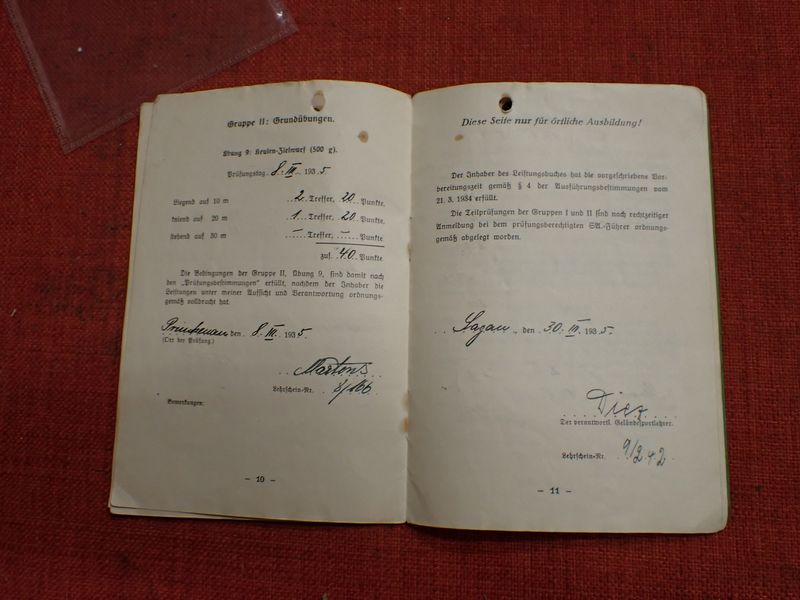 Gruppe II: Grundübungen.
Übung 9: Keulen-Zielwurf (500 g).
Prüfungstag 8. III. 1935.
Liegend auf 10 m 2 Treffer, 20 Punkte
kniend auf 20 m 1 Treffer, 20 Punkte
stehend auf 30 m – Treffer, – Punkte
zus. 40 Punkte
Die Bedingungen der Gruppe II, Übung 9, sind damit nach
den „Prüfungsbestimmungen" erfüllt, nachdem der Inhaber die
Leistungen unter meiner Aufsicht und Verantwortung ordnungs-
gemäß vollbracht hat.
den 8. III. 1935
(Ort der Prüfung.)
Martens
Lehrschein-Nr.
Bemerkungen:
– 10 –
Diese Seite nur für örtliche Ausbildung!
Der Inhaber des Leistungsbuches hat die vorgeschriebene Vor-
bereitungszeit gemäß § 4 der Ausführungsbestimmungen vom
21. 3. 1934 erfüllt.
Die Teilprüfungen der Gruppen I und II sind nach rechtzeitiger
Anmeldung bei dem prüfungsberechtigten SA.-Führer ordnungs-
gemäß abgelegt worden.
Sagan, den 30. III. 1935.
Diez
Der verantwortl. Geländesportlehrer.
Lehrschein-Nr. 9/242
– 11 –